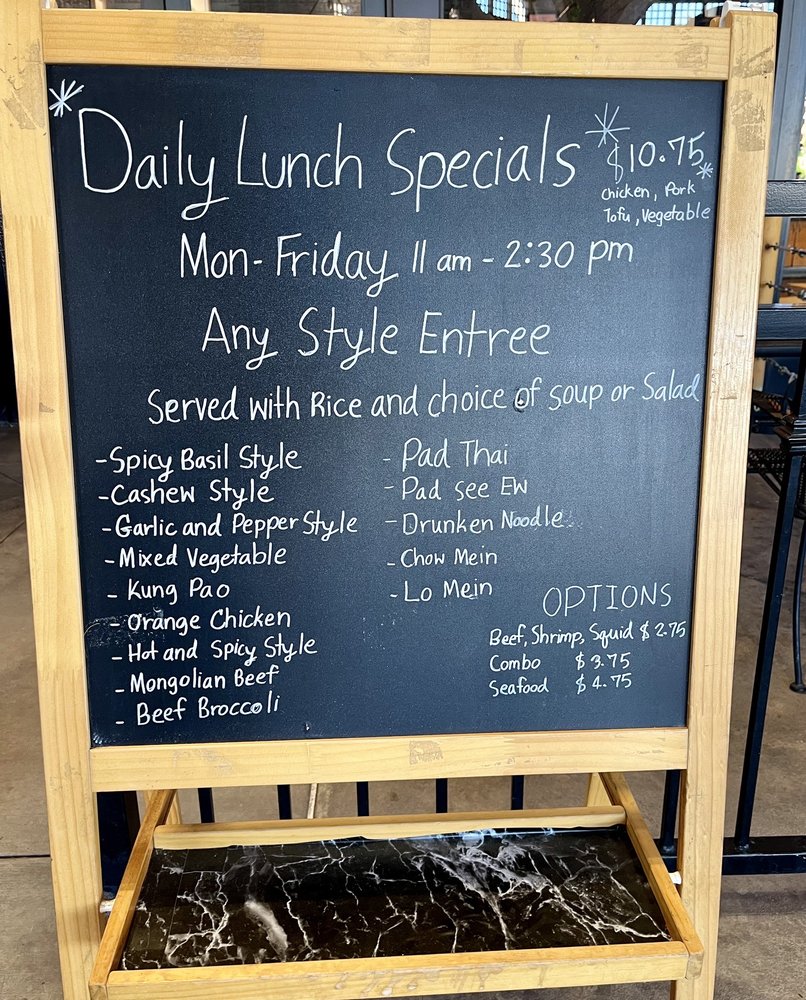 *Daily Lunch Specials* $10.75*
Chicken, Pork
Tofu, Vegetable
Mon-Friday 11 am - 2:30 pm
Any Style Entree
Served with Rice and choice of soup or Salad
- Spicy Basil Style
- Cashew Style
- Garlic and Pepper Style
- Mixed Vegetable
- Kung Pao
- Orange Chicken
- Hot and Spicy Style
- Mongolian Beef
- Beef Broccoli
- Pad Thai
- Pad See EW
- Drunken Noodle
- Chow Mein
- Lo Mein
OPTIONS
Beef, Shrimp, Squid $2.75
Combo $3.75
Seafood $4.75